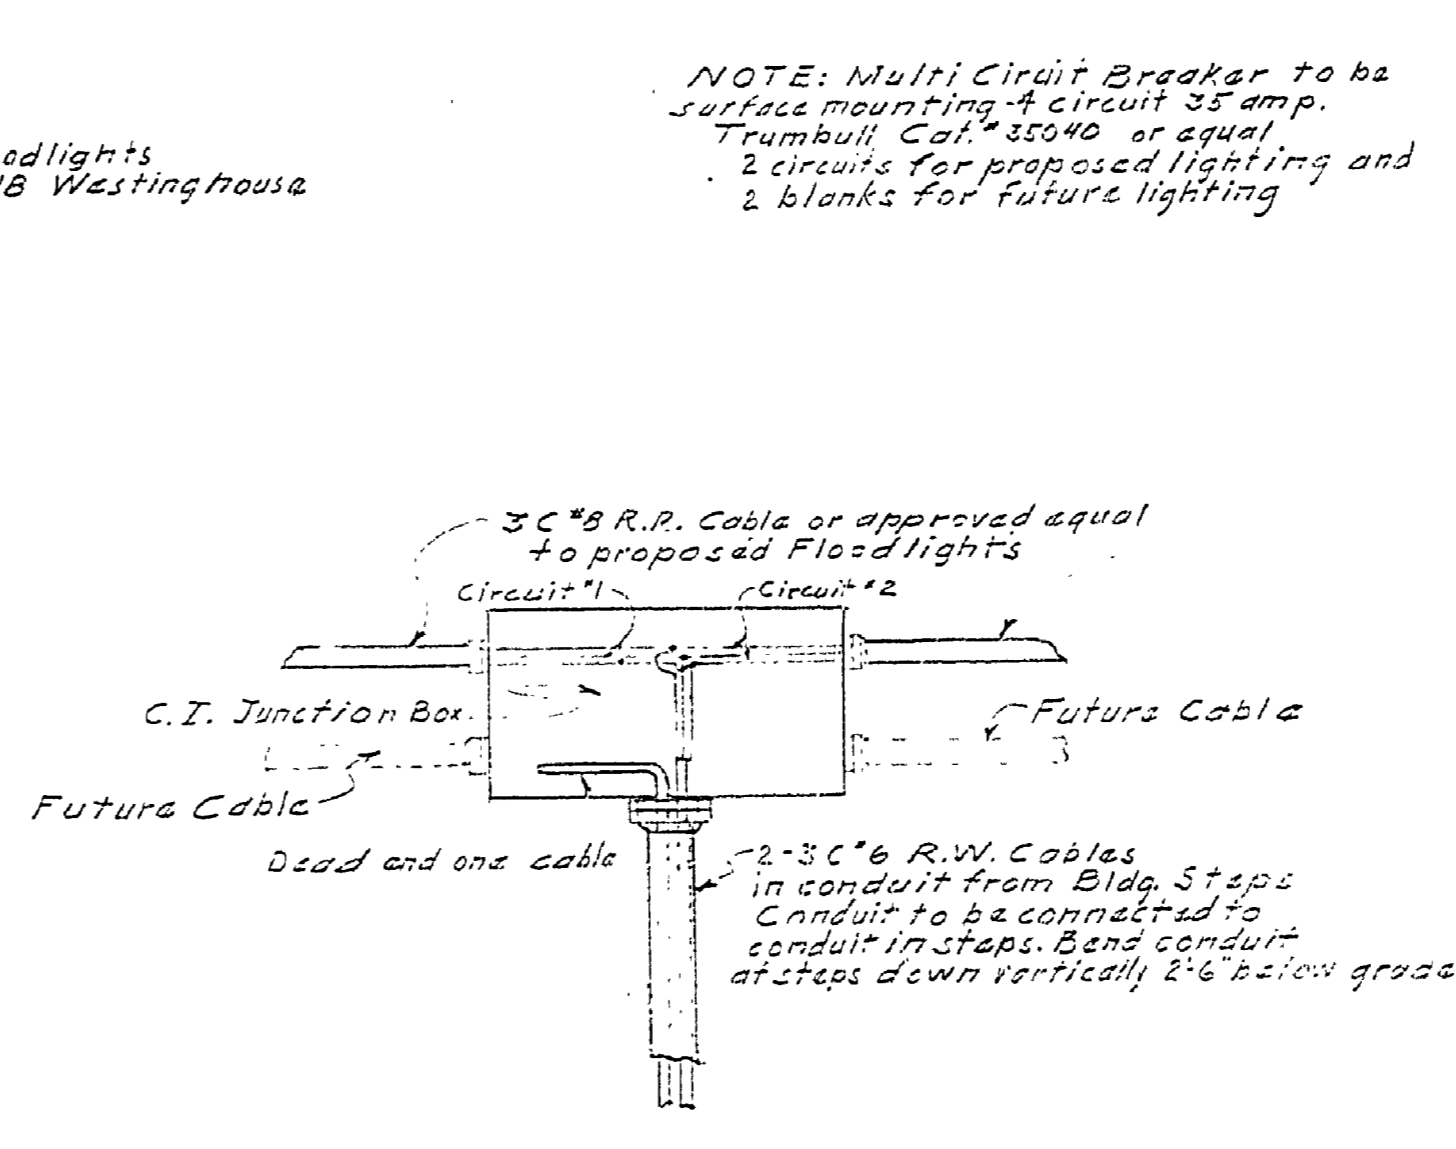 NOTE: Multi Ciruit Breaker to be
surface mounting-4 circuit 35 amp.
Trumbull Cat.# 35040 or equal
2 circuits for proposed lighting and
2 blanks for future lighting
odlights
1B Westinghouse
3 C #8 R.P. Cable or approved equal
to proposed Floodlights
Circuit #1
Circuit #2
C. I. Junction Box
Future Cable
Future Cable
Dead end one cable
2-3 C #6 R.W. Cables
in conduit from Bldg. Steps
Conduit to be connected to
conduit in steps. Bend conduit
at steps down vertically 2'-6" below grade